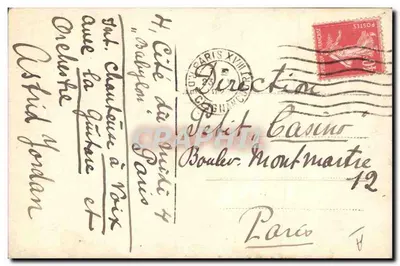 4, Cité du Midi 4
"Babylon" Paris
Int. Chanteuse à Voix
avec la Guitare et
Orchestre
Astrid Jordan
PARIS XVIII
Direction
Petit "Casino"
Boulev. Montmartre
12
Paris
POSTES